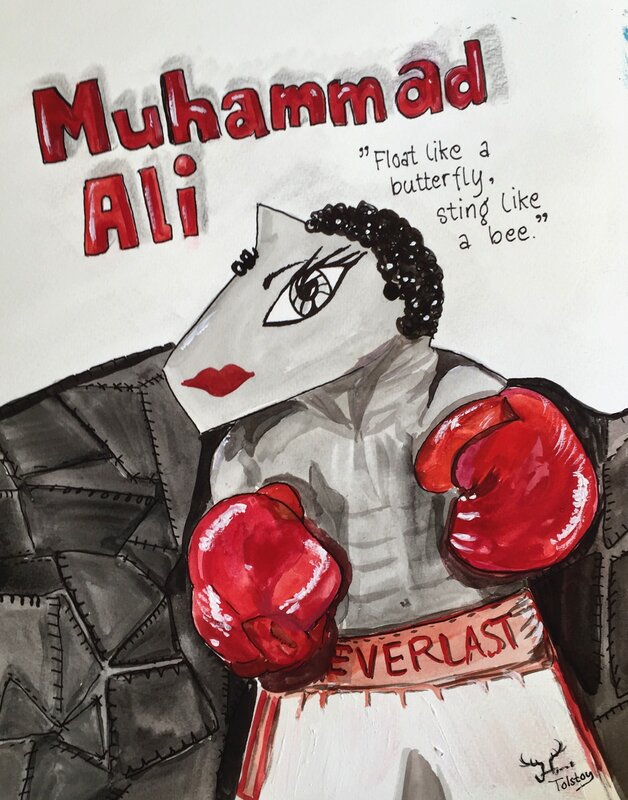 Muhammad
Ali
”Float like a
butterfly,
sting like
a bee.”
EVERLAST
Tolstoy